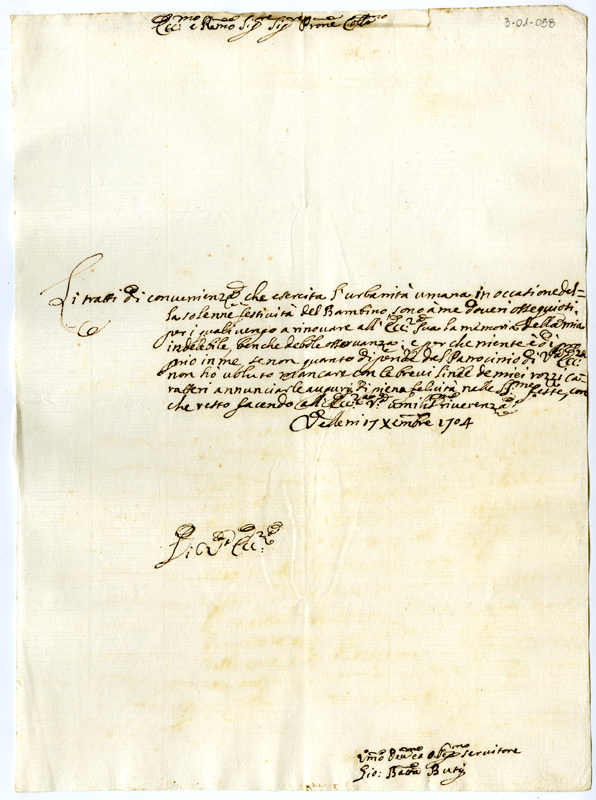 3-01-058
Ecc.mo e Rmo Sig.r Sig.r Prone Coll.mo
Li tratti di convenienza che esercita l'urbanità umana in occatione del-
la solenne festività del Bambino, sono à me doveri ossequiosi,
per i quali vengo a rinovare all'Ecc.za Sua la memoria della mia
indelebile benche debole osservanza; e per che niente è di pro-
prio in me se non quanto dipende del Patrocinio di V.ra Ecc.za
non hò voluto mancare con le brevi linee de miei rozzi Ca-
ratteri annunciarle augurij di piena felicità nelle S.me feste, con
che resto facendo all'Ecc.za V.ra umiliss.a riverenza.
Velletri 17 Xembre 1704
Di V.ra Ecc.za
Vmo Devmo ed Oblig.mo servitore
Gio: Batta Butij